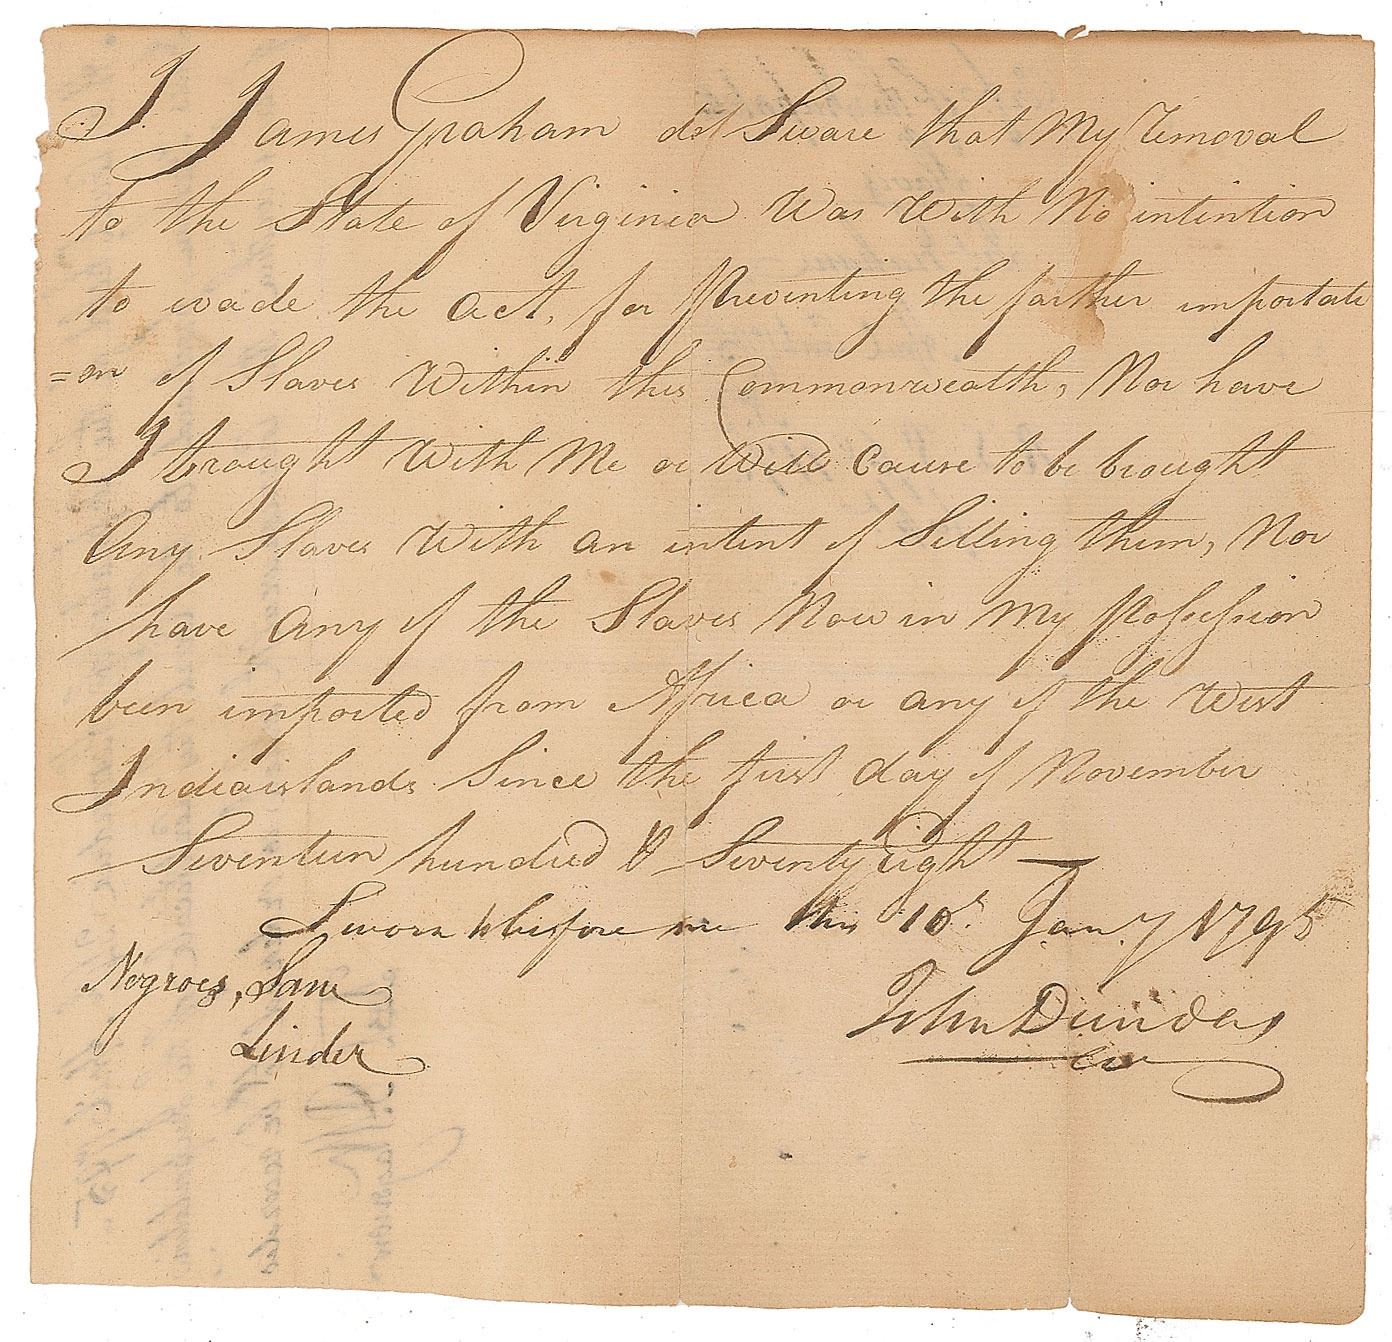 I. James Graham do Sware that My removal
to the State of Virginia Was With No intention
to evade the act, for Preventing the farther importati
=on of Slaves Within this Commonwealth, Nor have
I brought With Me or Will Cause to be brought
Any Slaves With an intent of Selling them, Nor
have Any of the Slaves Now in My Possession
been imported from Africa or any of the West
Indiaislands Since the first day of November
Seventeen hundred & Seventy Eight —
Sworn to before me this 10th Jany 1795
Negroes, Sam
Linder
John Dundas